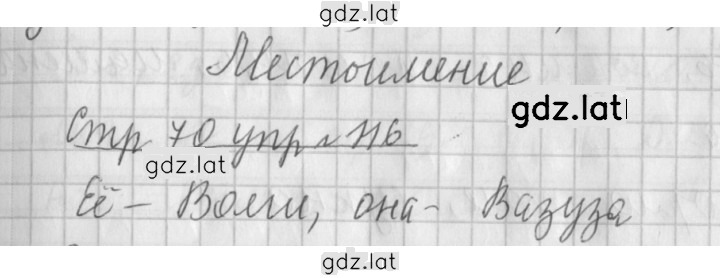 gdz.lat
Местоимение
gdz.lat
Стр 70 упр № 116
gdz.lat
Её – Волги, она – Вазуза
gdz.lat